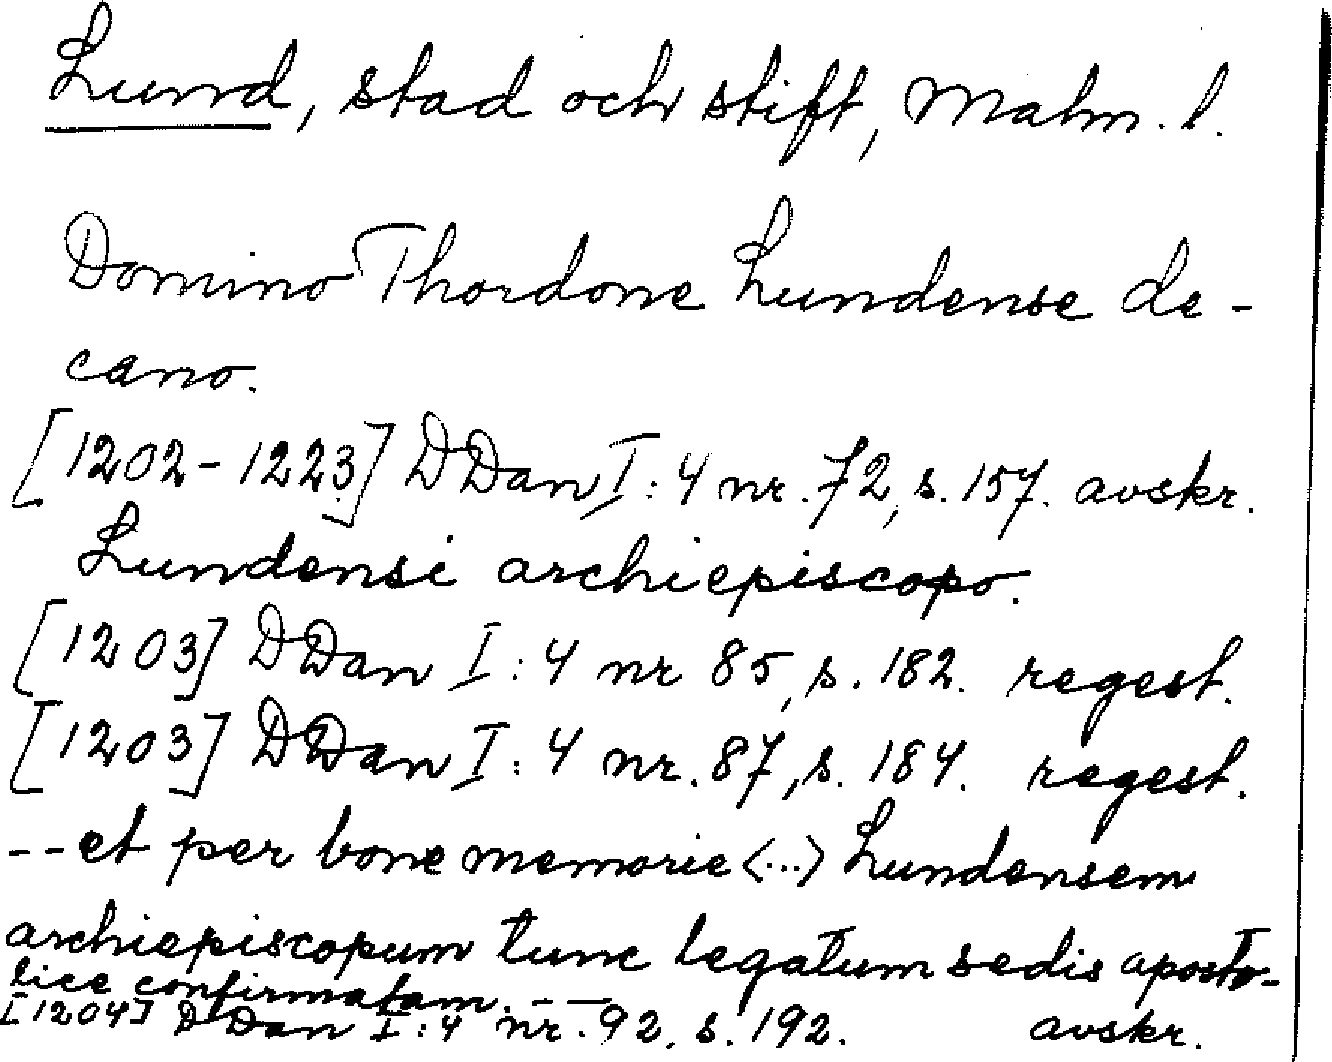 Lund, stad och stift, Malm. l.
Domino Thordone Lundense de-
cano.
[1202-1223] DDan I:4 nr. 72, s. 157. avskr.
Lundensi archiepiscopo.
[1203] DDan I:4 nr 85, s. 182. regest.
[1203] DDan I:4 nr. 87, s. 184. regest.
--et per bone memorie <...> Lundensem
archiepiscopum tunc legatum sedis aposto-
lice confirmatam. --
[1204] DDan I:4 nr. 92, s. 192. avskr.